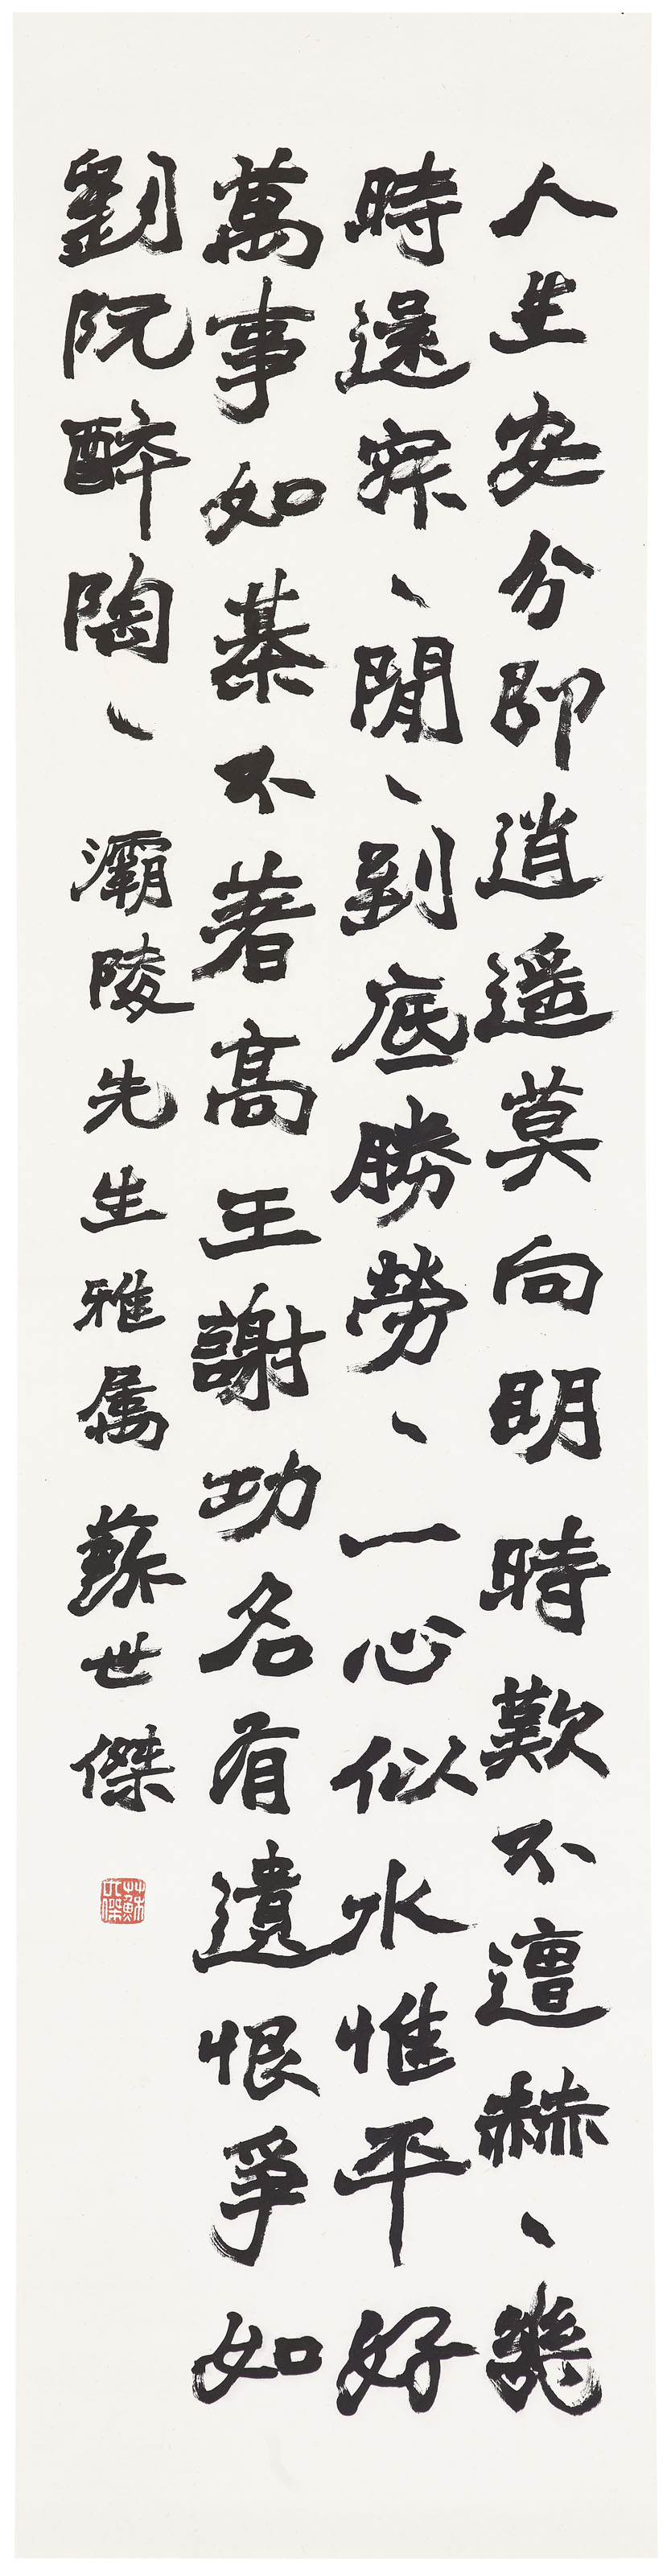 人生安分即逍遥莫向明時歎不遭赫、幾
時還寂、閒、到底勝勞、一心似水惟平好
萬事如棊不著高王謝功名有遺恨爭如
劉阮醉陶、 灞陵先生雅属 蘇世傑
蘇世傑